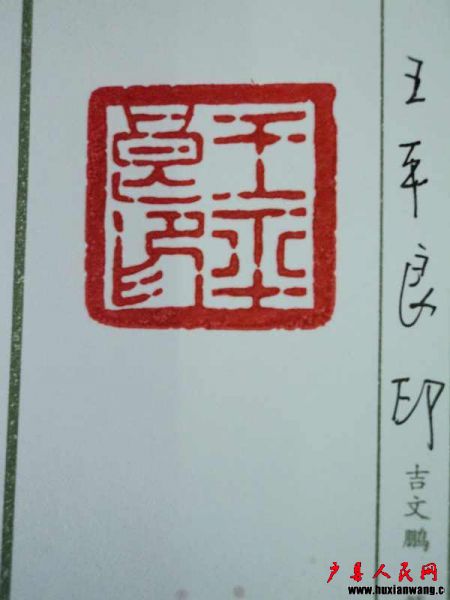 王平
良印
王平良印
吉文鹏
户县人民网
www.huxianwang.c